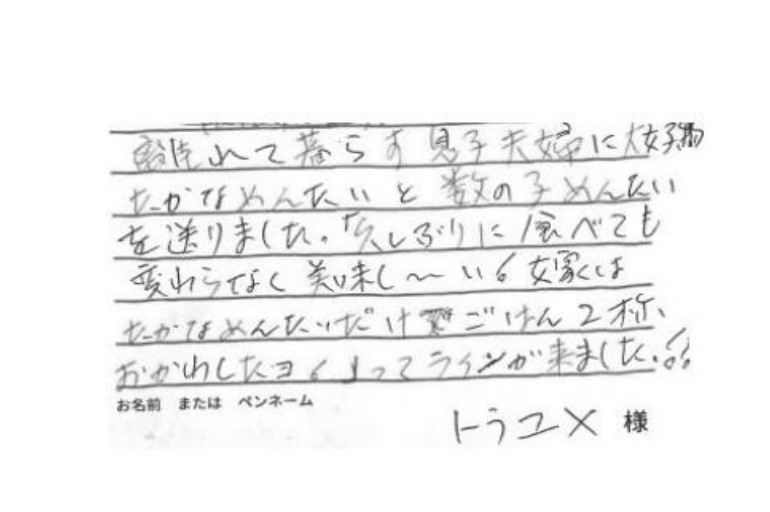 離れて暮らす息子夫婦に大好物
たかなめんたいと数の子めんたい
を送りました。「久しぶりに食べても
変わらなく美味し〜い! 嫁は
たかなめんたいだけでごはん2杯、
おかわしたヨ!」ってラインが来ました。!!
お名前 または ペンネーム
トラユメ 様